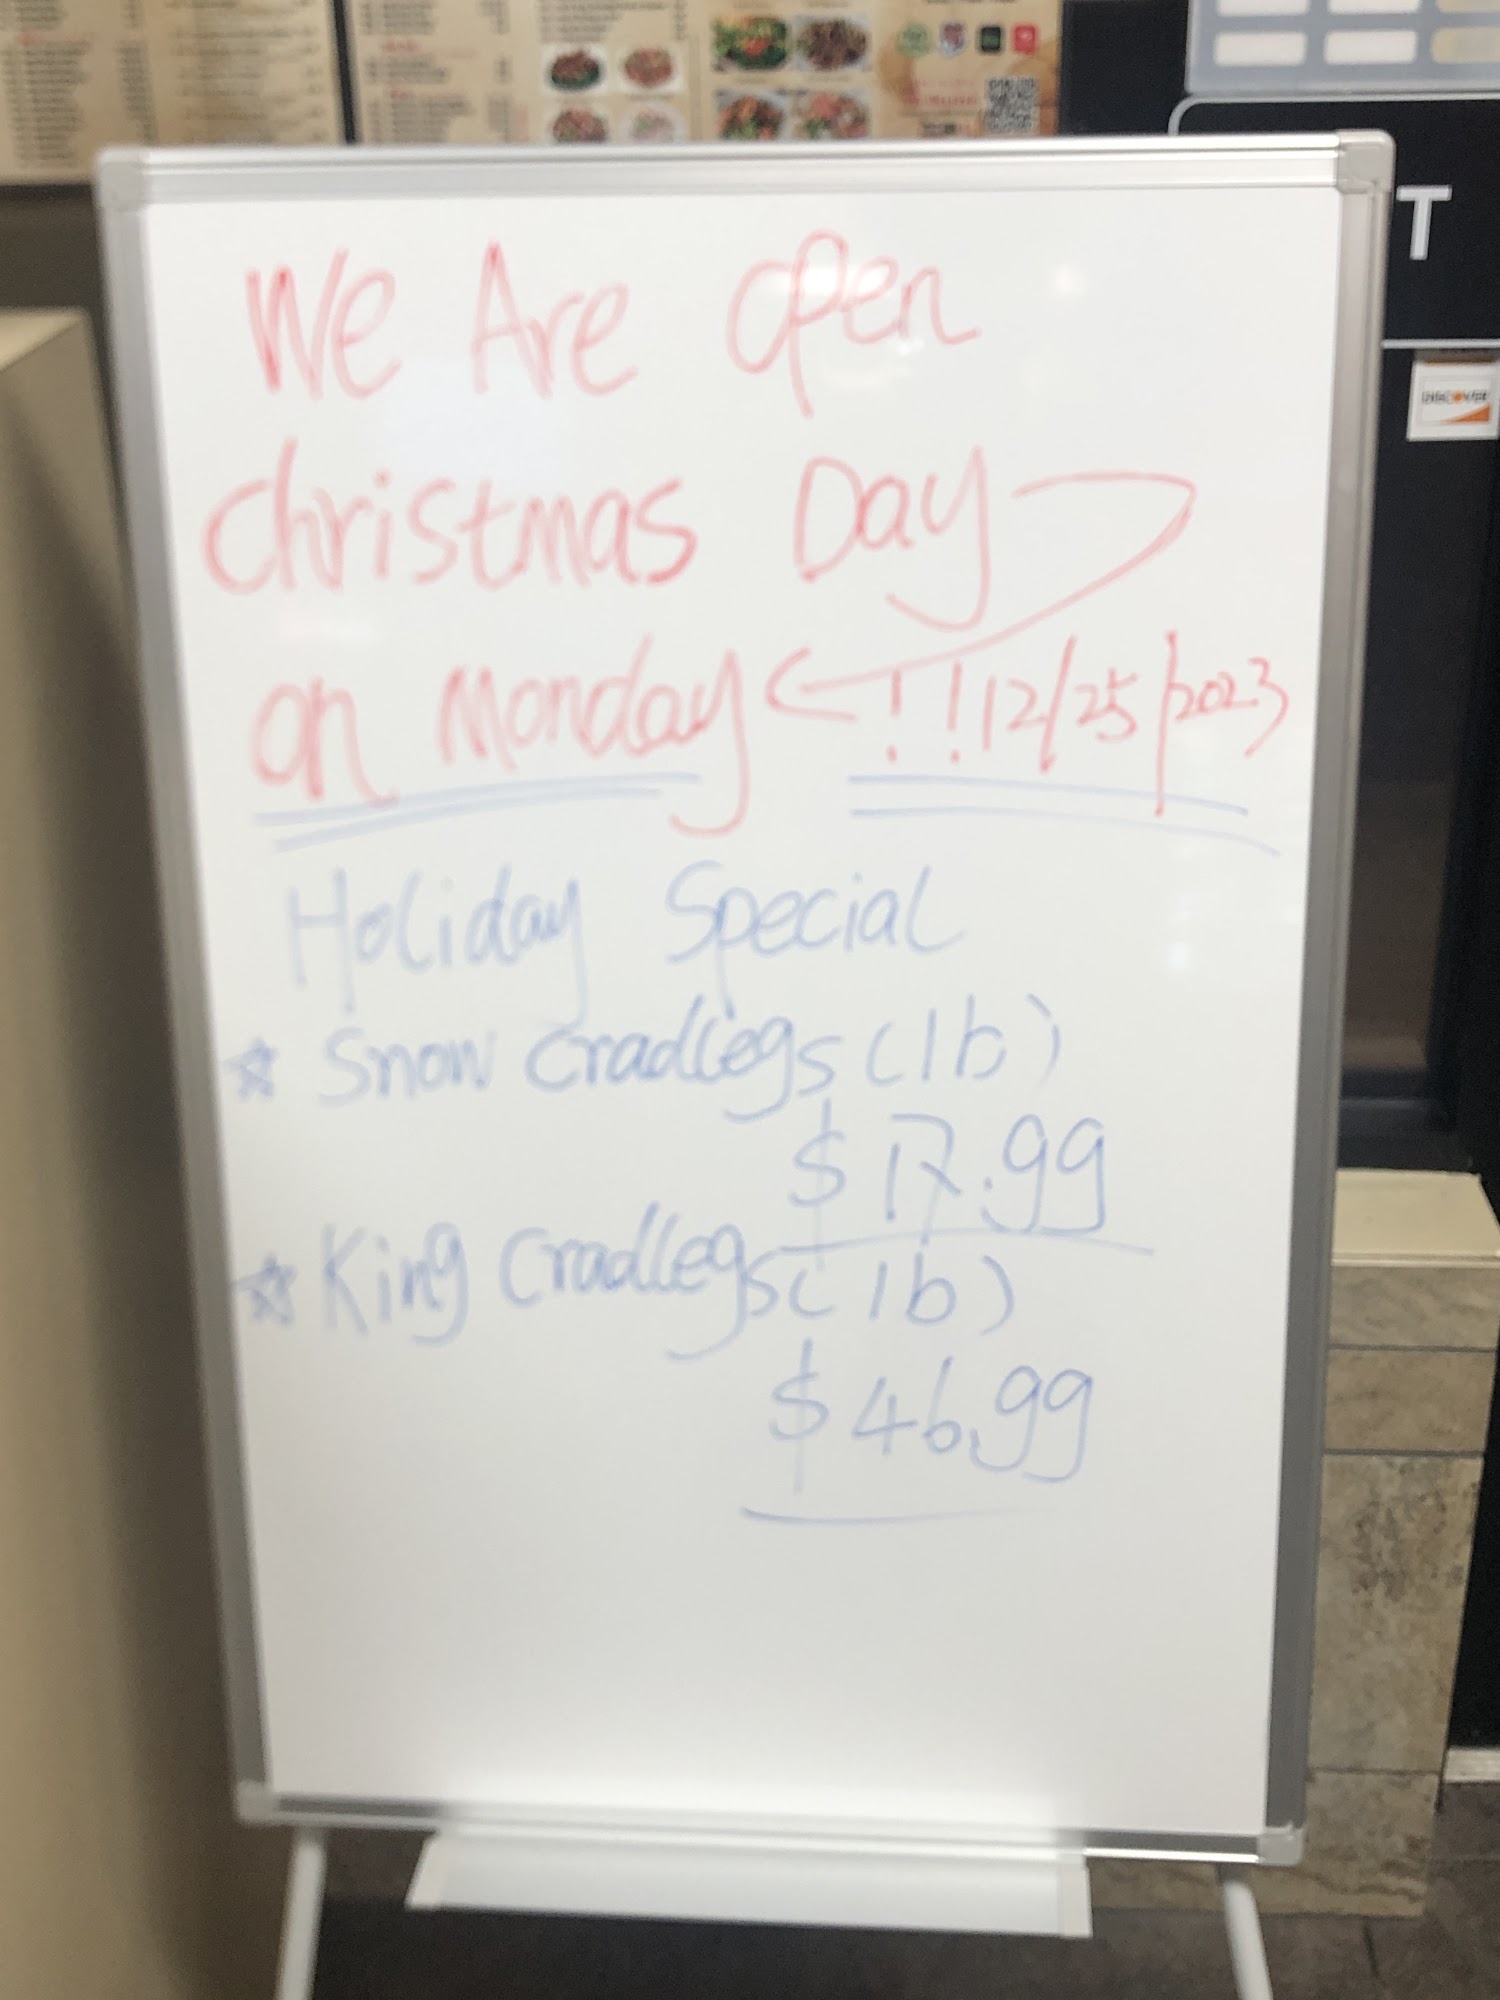 We Are open
christmas Day
on Monday !! 12/25/2023
Holiday Special
☆ Snow Cradlegs (1b)
$17.99
☆ King Cradlegs (1b)
$46.99
T
DISCOVER